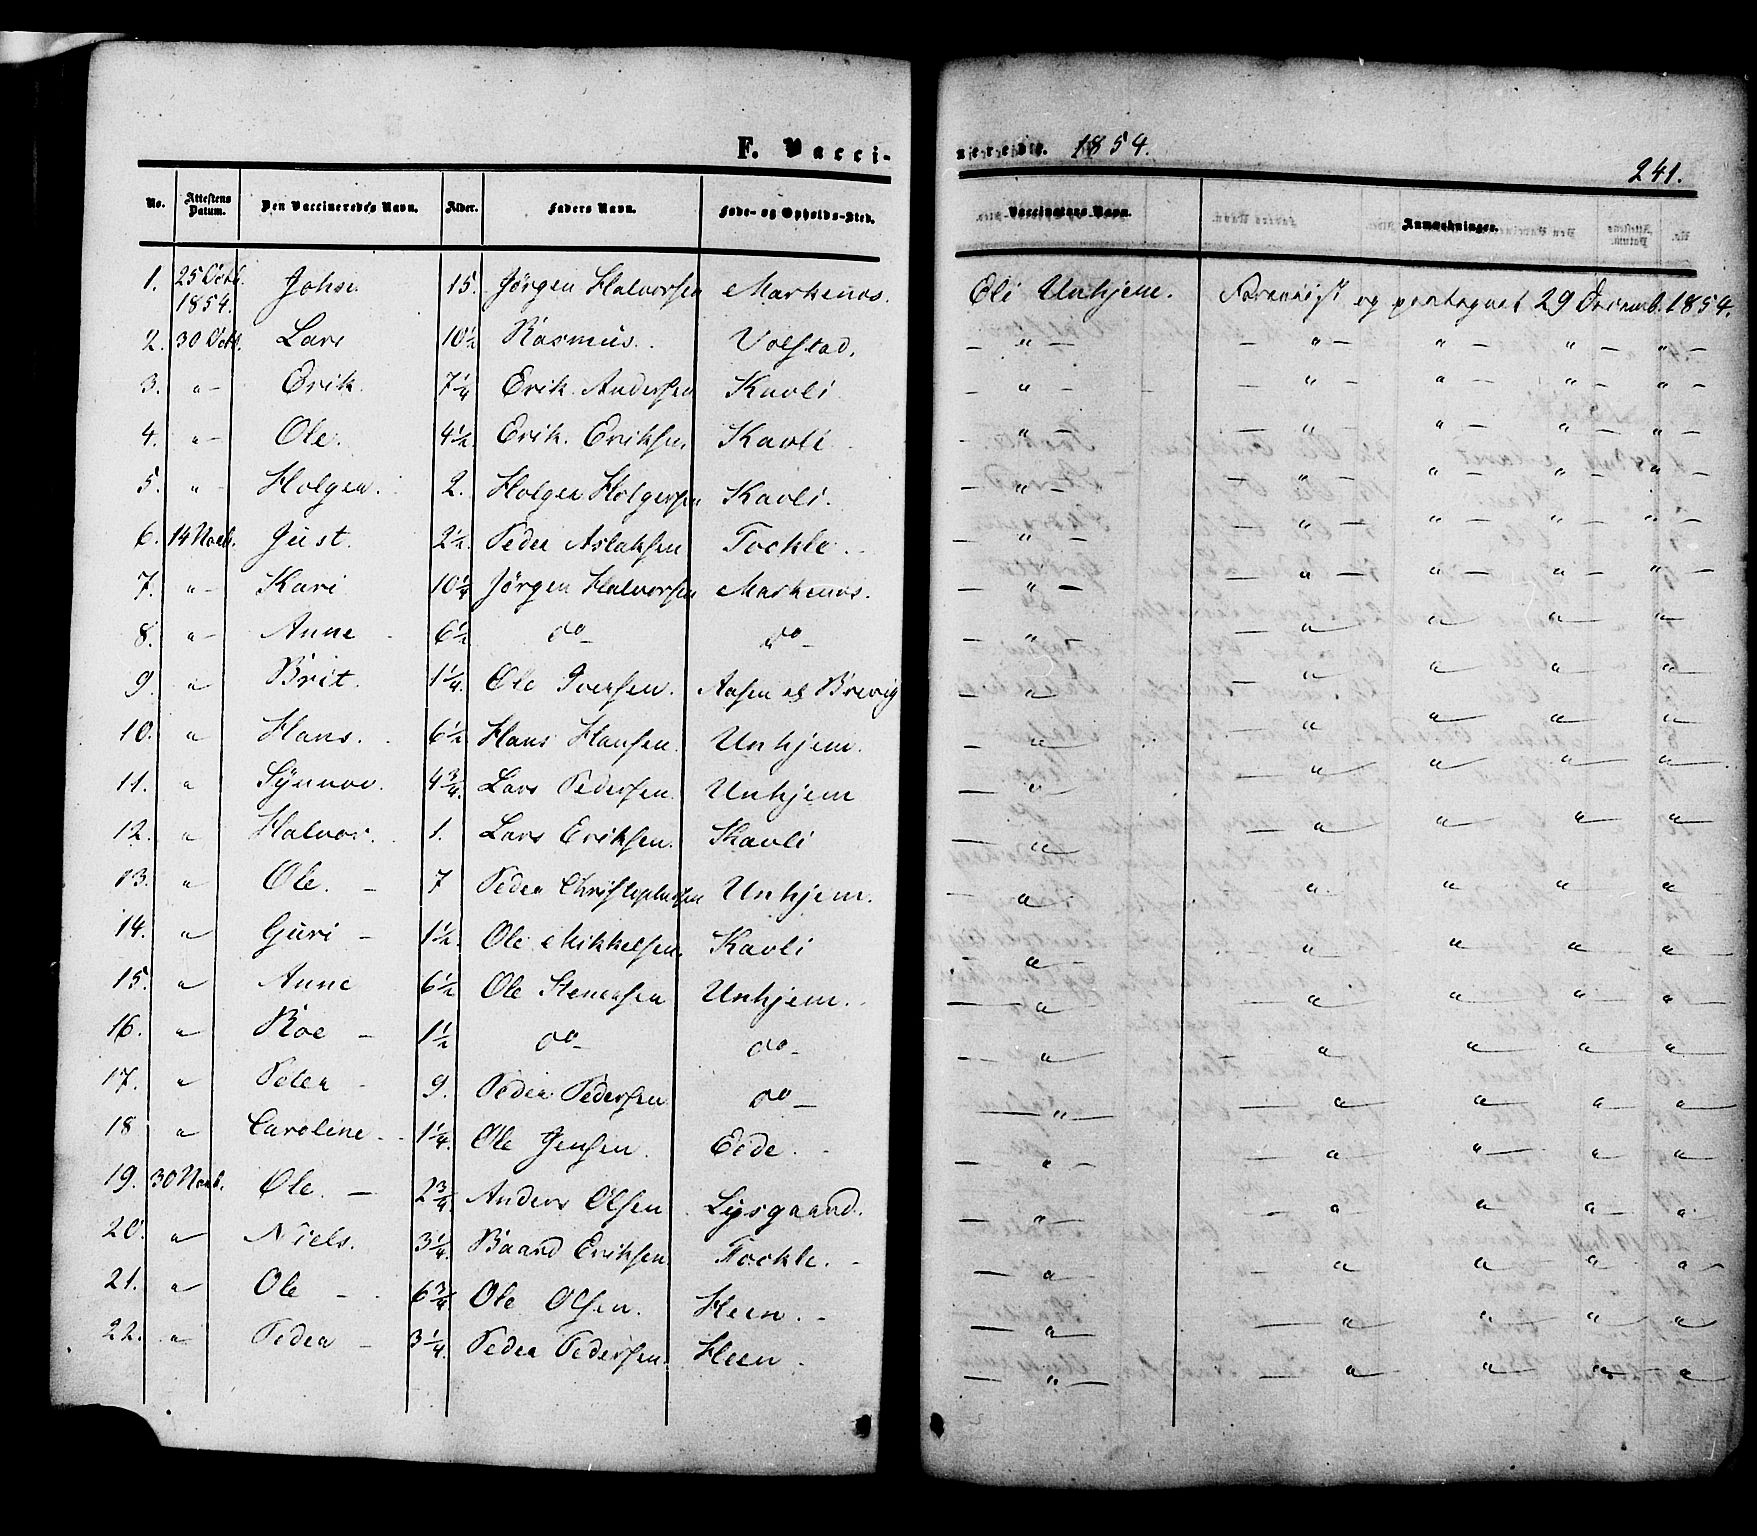 F. Vacci-
nerede. 1854.
241.
No. Attestens Datum. Den Vaccineredes Navn. Alder. Faders Navn. Føde- og Opholds-Sted. Vaccinatens Navn. Anmærkninger.
1. 25 Octb. 1854. Johan 15. Jørgen Halvorsen Markenæs. Eli Unhjem. Foreviist og paategnet 29 Decemb. 1854.
2. 30 Octb. Lars 10½ Rasmus. Volstad. — " — — " — " — " — " —
3. " — Erik 7¼ Erik Andersen Kavli — " — — " — " — " — " —
4. " — Ole. 4½ Erik Eriksen Kavli — " — — " — " — " — " —
5. " — Holgen. 2. Holgen Holgersen Kavli. — " — — " — " — " — " —
6. 14 Novb. Just. 2½ Peder Aslaksen Tockle. — " — — " — " — " — " —
7. " — Kari 10¼ Jørgen Halvorsen Markenæs. — " — — " — " — " — " —
8. " — Anne 6½ do — do — — " — — " — " — " — "
9. " Brit. 1¼ Ole Iversen. Aasen af Brevig — " — — " — " — " — "
10. " Hans. 6½ Hans Hansen. Unhjem. — " — — " — " — " — "
11. " Synnov. 4¾ Lars Pedersen Unhjem — " — — " — " — " — "
12. " Halvor. 1. Lars Eriksen. Kavli — " — — " — " — " — "
13. " Ole. — 7 Peder Christophersen Unhjem. — " — " — " — " — "
14. " Guri — 1½. Ole Mikkelsen. Kavli — " — — " — " — " — "
15. " Anne 6½ Ole Stenersen Unhjem. — " — — " — " — " — "
16. " Roe — 1½ do — do — — " — — " — " — " — "
17. " Peder 9. Peder Pedersen do — — " — — " — " — " — "
18 " Caroline. 1¼. Ole Jensen. Eide. — " — — " — " — " — "
19. 30 Novb. Ole. — 2¾. Anders Olsen Lysgaard. — " — — " — " — " — "
20. " Niels. 3¼. Baard Eriksen Tockle. — " — — " — " — " — "
21. " Ole — 6¾ Ole Olsen. Heen. — " — — " — " — " — "
22. " Peder — 3¼. Peder Pedersen. Heen. — " — — " — " — " — "